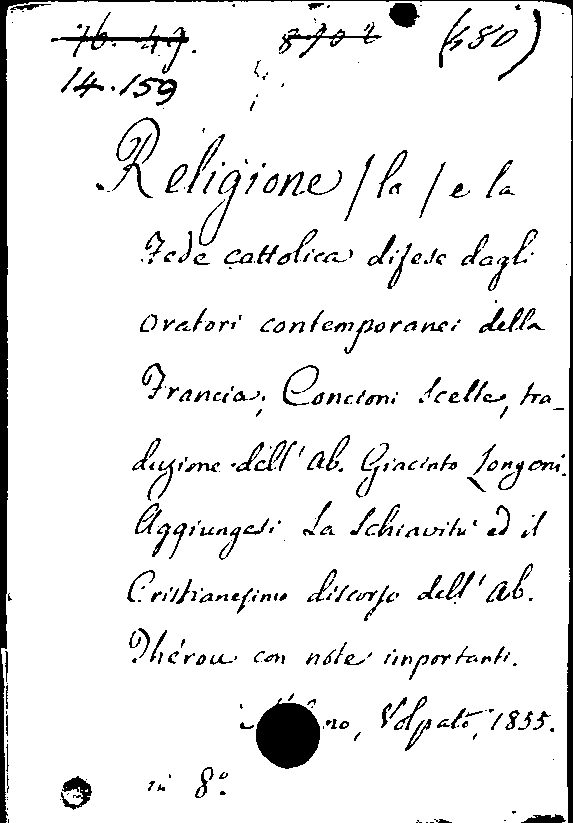 76. 47. 8902 (480)
14.159
Religione / la / e la
Fede cattolica difese dagli
oratori contemporanei della
Francia; Concioni scelte, tra-
duzione dell' Ab. Giacinto Longoni.
Aggiungesi La Schiavitù ed il
Cristianesimo discorso dell' Ab.
Thérou con note importanti.
no, Volpato, 1855.
in 8º